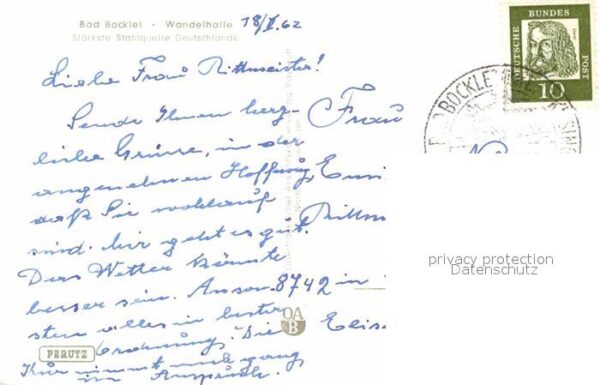 Bad Bocklet · Wandelhalle
Stärkste Stahlquelle Deutschlands
18/V. 62
Liebe Frau Rittmeister!
Sende Ihnen herz-
liche Grüsse, in der
angenehmen Hoffnung,
daß Sie wohlauf
sind. Mir geht es gut.
Das Wetter könnte
besser sein. Anson-
sten alles in bester
Ordnung. Die
Kur nimmt mich ganz
in Anspruch.
Frau
Emi
Rittm
8742 in
Elis
PERUTZ
DEUTSCHE BUNDESPOST
10
BAD BOCKLET
privacy protection
Datenschutz